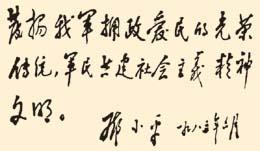 发扬我军拥政爱民的光荣
传统，军民共建社会主义精神
文明。
邓小平 一九八三年六月